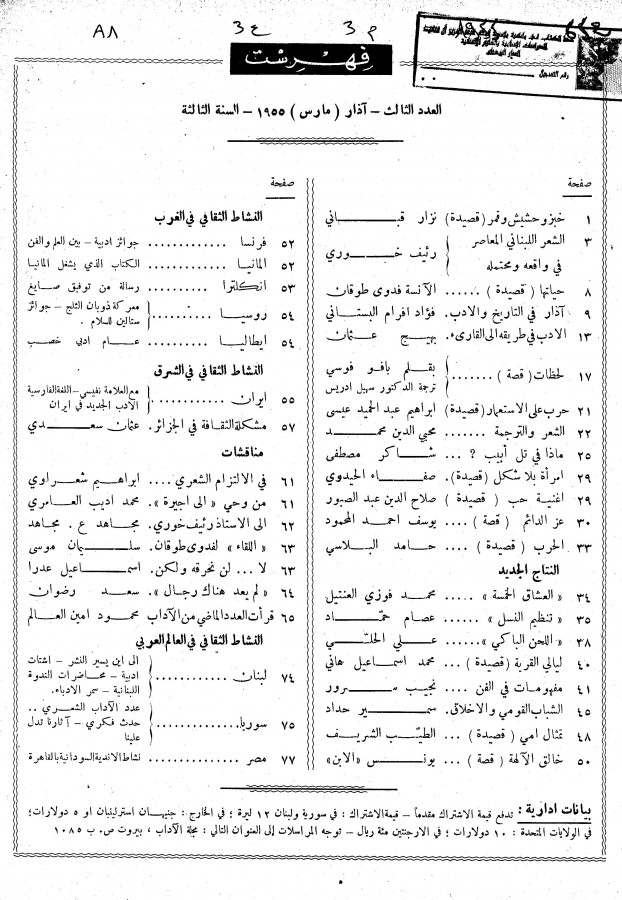 ٨٨ ٣ع ٣م
فهرست
رقم التسجيل
العدد الثالث – آذار ( مارس ) ١٩٥٥ – السنة الثالثة
صفحة
١ خبز وحشيش وقمر (قصيدة) نزار قبـــاني
٣ الشعر اللبناني المعاصر في واقعه ومحتمله } رئيف خــوري
٨ حياتها ( قصيدة ) ...... الآنسة فدوى طوقان
٩ آذار في التاريخ والادب. فؤاد افرام البستاني
١٣ الادب في طريقه الى القارىء. بهيج عثمان
١٧ لحظات ( قصة ) ....... { بقـلم بافو فوسي
ترجمة الدكتور سهيل ادريس
٢١ حرب على الاستعمار (قصيدة) ابراهيم عبد الحميد عيسى
٢٢ الشعر والترجمة ....... محيي الدين محمد
٢٥ ماذا في تل أبيب ؟ ... شاكر مصطفى
٢٩ امرأة بلا شكل (قصيدة). صفاء الحيدري
٢٩ اغنية حب ( قصيدة ) صلاح الدين عبد الصبور
٣٠ عز الدائم ( قصة ) .... يوسف احمد المحمود
٣٣ الحرب ( قصيدة ) .... حامد البلاسي
النتاج الجديد
٣٤ « العشاق الخمسة » ..... محمد فوزي العنتيل
٣٥ « تنظيم النسل » ...... عصام حمّاد
٣٨ « اللحن الباكي » ...... علي الحلّي
٤٠ ليالي القرية ( قصيدة ) ... محمد اسماعيل هاني
٤١ مفهومات في الفن .... نجيب سرور
٤٥ الشباب القومي والاخلاق. سمير حداد
٤٨ تمثال امي ( قصيدة ) .. الطيّب الشريف
٥٠ خالق الآلهة ( قصة ) .. يونس «الابن»
صفحة
النشاط الثقافي في الغرب
٥٢ فرنسا ............ جوائز ادبية – بين العلم والفن
٥٢ المانيا ............ الكتاب الذي يشغل المانيا
٥٣ انكلترا .......... رسالة من توفيق صايغ
٥٤ روسيا .......... { معركة ذوبان الثلج – جوائز
ستالين للسلام .
٥٤ ايطاليا .......... عام ادبي خصب
النشاط الثقافي في الشرق
٥٥ ايران ............ { مع العلامة نفيسي – اللغة الفارسية
الادب الجديد في ايران
٥٧ مشكلة الثقافة في الجزائر. عثمان سعدي
مناقشات
٦١ في الالتزام الشعري .... ابراهيم شعراوي
٦١ من وحي « الى اجيرة ». محمد اديب العامري
٦٢ الى الاستاذ رئيف خوري. مجاهد ع . مجاهد
٦٣ « اللقاء » لفدوى طوقان. سليمان موسى
٦٣ لا ... لن نحرقه ولكن. اسماعيل عدرا
٦٤ « لم يعد هناك رجال ». سعد رضوان
٦٥ قرأت العدد الماضي من الآداب محمود امين العالم
النشاط الثقافي في العالم العربي
٧٤ لبنان ............ { الى اين يسير النشر – اشتات
ادبية – محاضرات الندوة
اللبنانية – سمر الادباء.
٧٥ سوريا ............ { عدد الآداب الشعري ..
حدث فكري – آثارنا تدل
علينا
٧٧ مصر ............ نشاط الاندية السودانية بالقاهرة
بيانات ادارية : تدفع قيمة الاشتراك مقدماً – قيمة الاشتراك : في سورية ولبنان ١٢ ليرة ؛ في الخارج : جنيهان استرلينيان او ٥ دولارات؛
في الولايات المتحدة : ١٠ دولارات ؛ في الارجنتين مئة ريال – توجه المراسلات إلى العنوان التالي : مجلة الآداب ، بيروت ص. ب ١٠٨٥